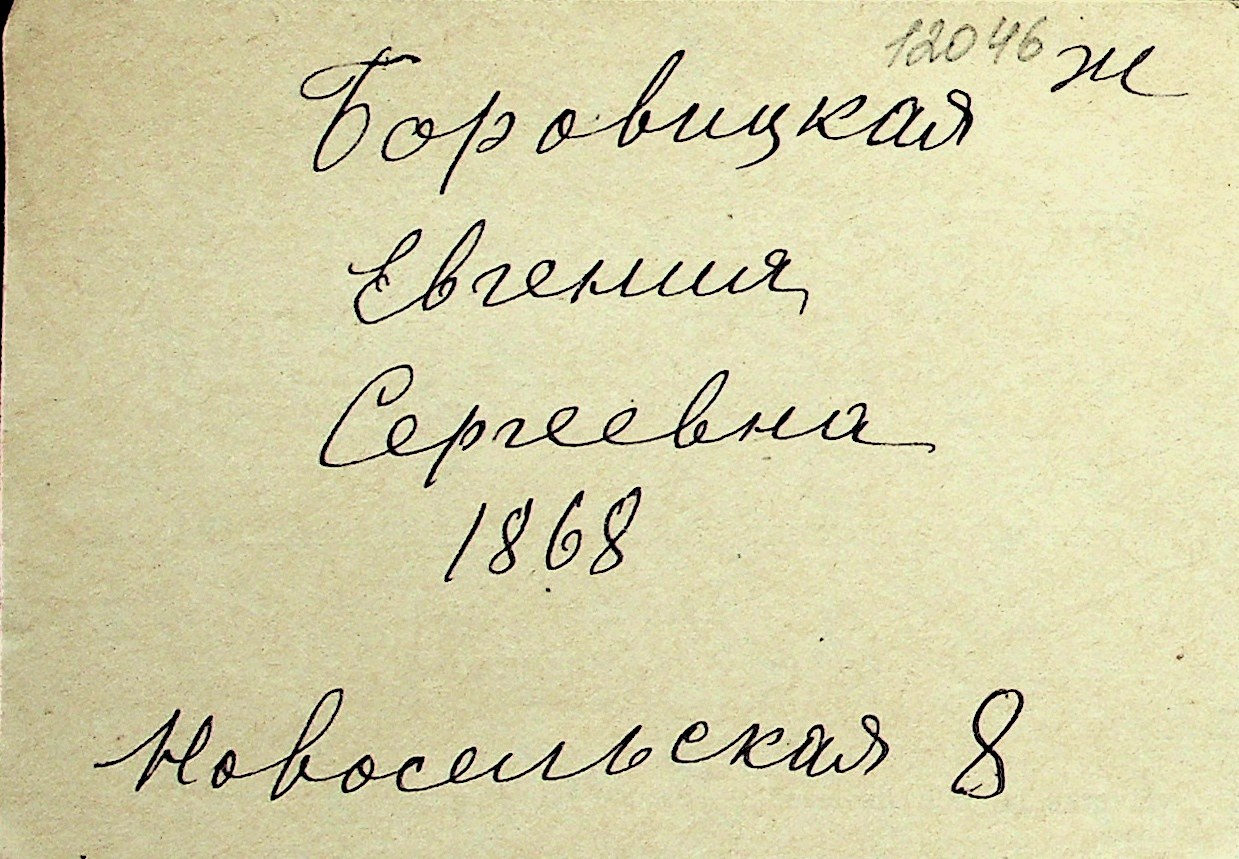 12046 ж
Боровицкая
Евгения
Сергеевна
1868
Новосельская 8